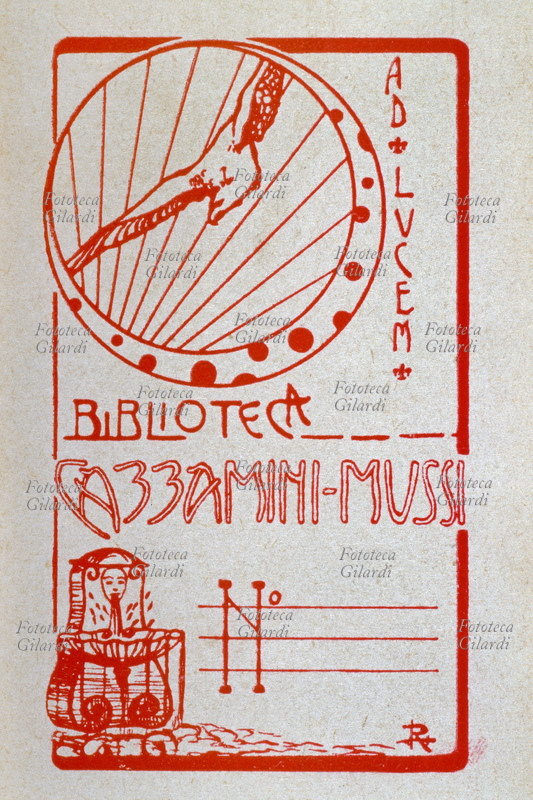 AD LUCEM
Fototeca
Gilardi
Fototeca
Gilardi
Fototeca
Gilardi
Fototeca
Gilardi
Fototeca
Gilardi
Fototeca
Gilardi
Fototeca
Gilardi
Fototeca
Gilardi
Fototeca
Gilardi
Fototeca
Gilardi
BIBLIOTECA
CAZZAMINI-MUSSI
Fototeca
Gilardi
Fototeca
Gilardi
Fototeca
Gilardi
Fototeca
Gilardi
Fototeca
Gilardi
Nº
Fototeca
Gilardi
Fototeca
Gilardi
Fototeca
Gilardi